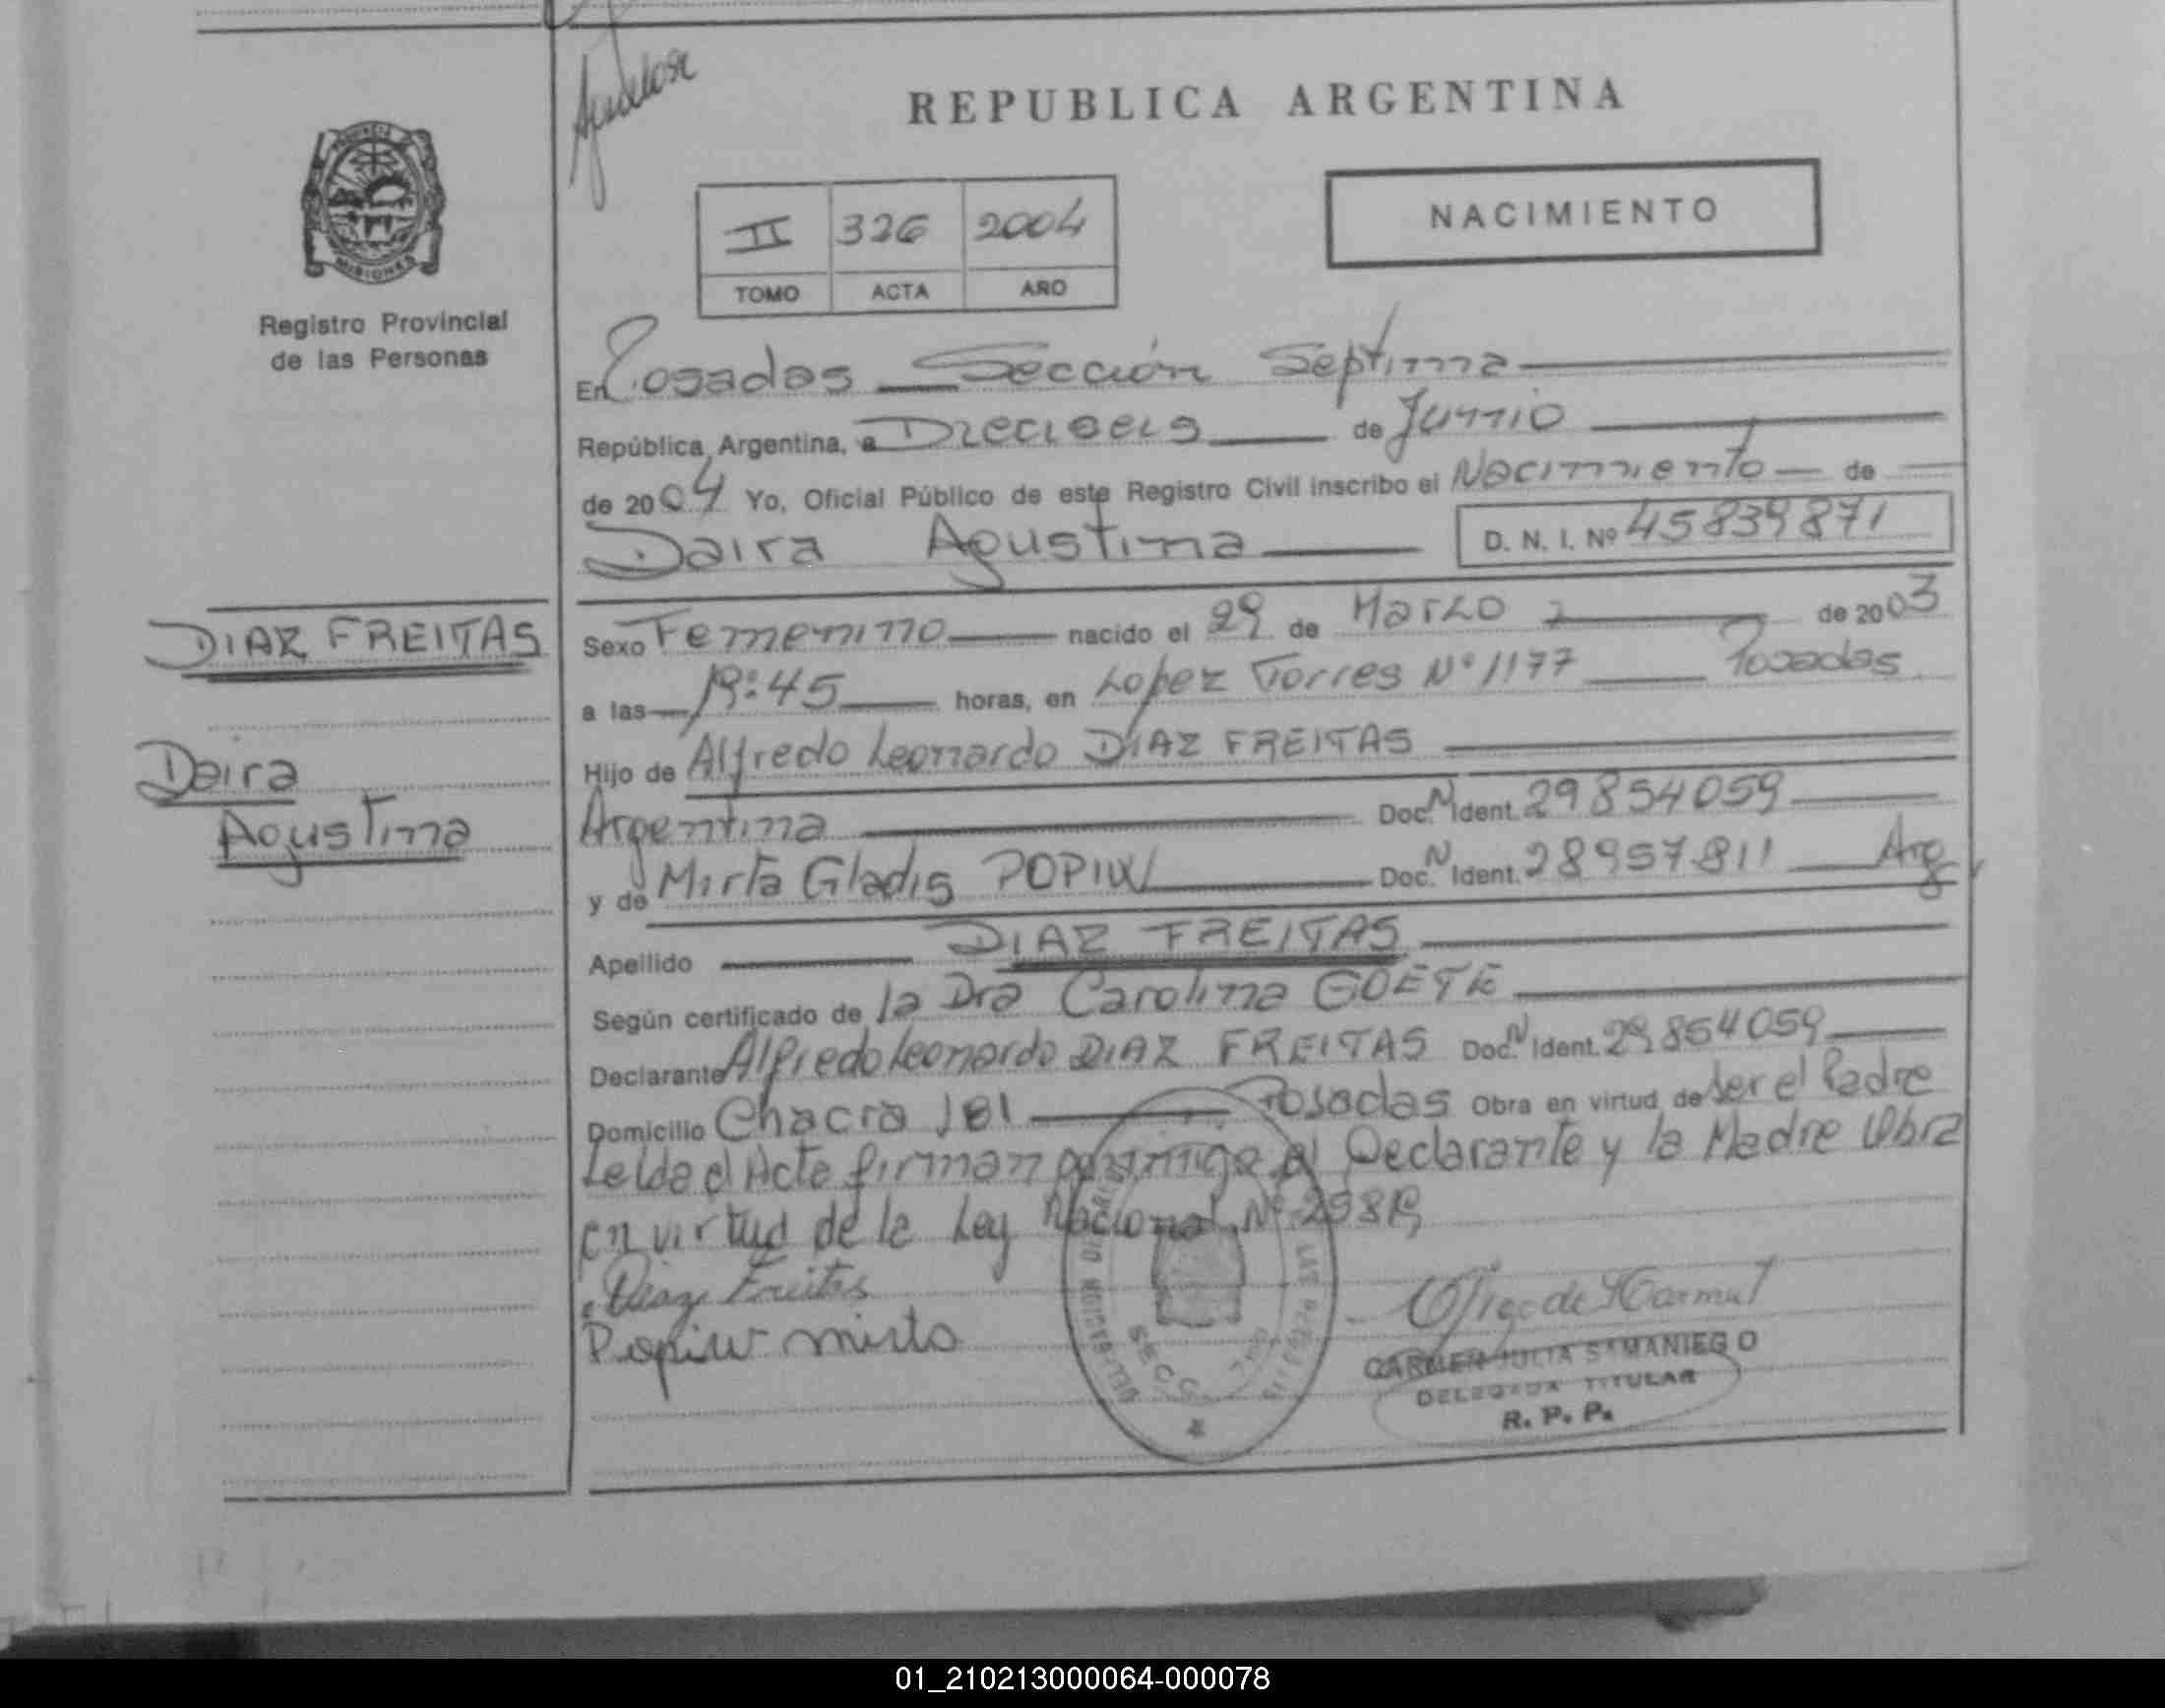 REPUBLICA ARGENTINA
NACIMIENTO
II 326 2004
TOMO ACTA AÑO
MISIONES
Registro Provincial
de las Personas
En Posadas Sección Septima
República Argentina, a Dieciseis de Junio
de 2004 Yo, Oficial Público de este Registro Civil inscribo el Nacimiento de
Daira Agustina D. N. I. Nº 45839871
DIAZ FREITAS
Daira
Agustina
Sexo Femenino nacido el 29 de Marzo de 2003
a las 19:45 horas, en Lopez Torres Nº 1177 Posadas
Hijo de Alfredo Leonardo DIAZ FREITAS
Argentina Doc. N Ident. 29854059
y de Mirta Gladis POPIW Doc. N Ident. 28957811 Arg
Apellido DIAZ FREITAS
Según certificado de la Dra Carolina GOETE
Declarante Alfredo Leonardo DIAZ FREITAS Doc. N Ident. 29854059
Domicilio Chacra 181 Posadas Obra en virtud de Ser el Padre
Leida el Acta firman conmigo el Declarante y la Madre Obra
en virtud de la Ley Nacional Nº
Diaz Freitas
Popiw Mirta
CARMEN JULIA SAMANIEGO
DELEGADA TITULAR
R. P. P.
01_210213000064-000078